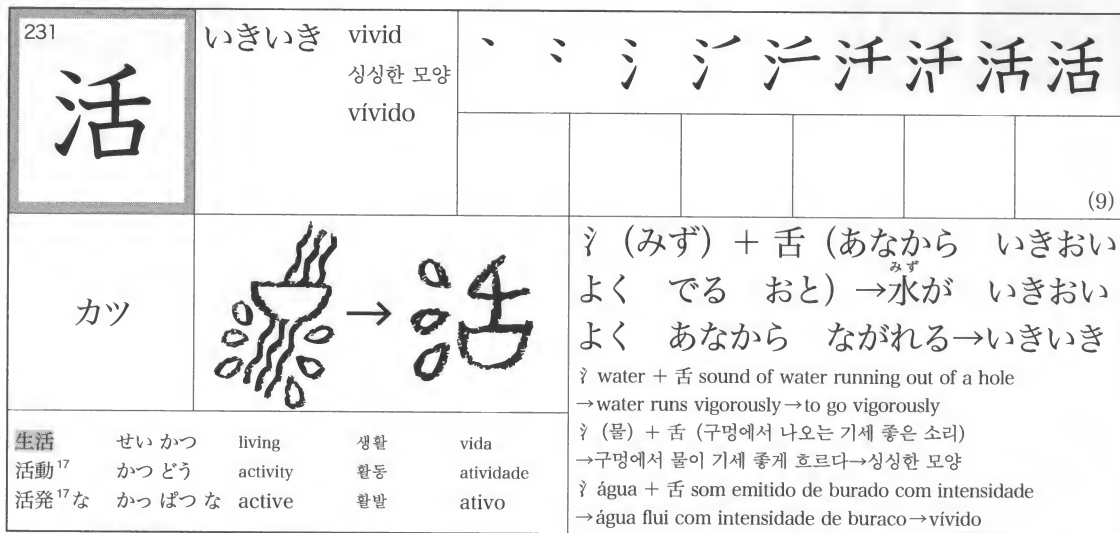 231
活
いきいき vivid
싱싱한 모양
vívido
丶 冫 氵 活 活
(9)
カツ
→
氵 (みず) + 舌 (あなから いきおい
よく でる おと) →水が いきおい
みず
よく あなから ながれる→いきいき
氵 water + 舌 sound of water running out of a hole
→water runs vigorously→to go vigorously
氵 (물) + 舌 (구멍에서 나오는 기세 좋은 소리)
→구멍에서 물이 기세 좋게 흐르다→싱싱한 모양
氵 água + 舌 som emitido de burado com intensidade
→água flui com intensidade de buraco→vívido
生活 せい かつ living 생활 vida
活動17 かつ どう activity 활동 atividade
活発17な かっ ぱつ な active 활발 ativo